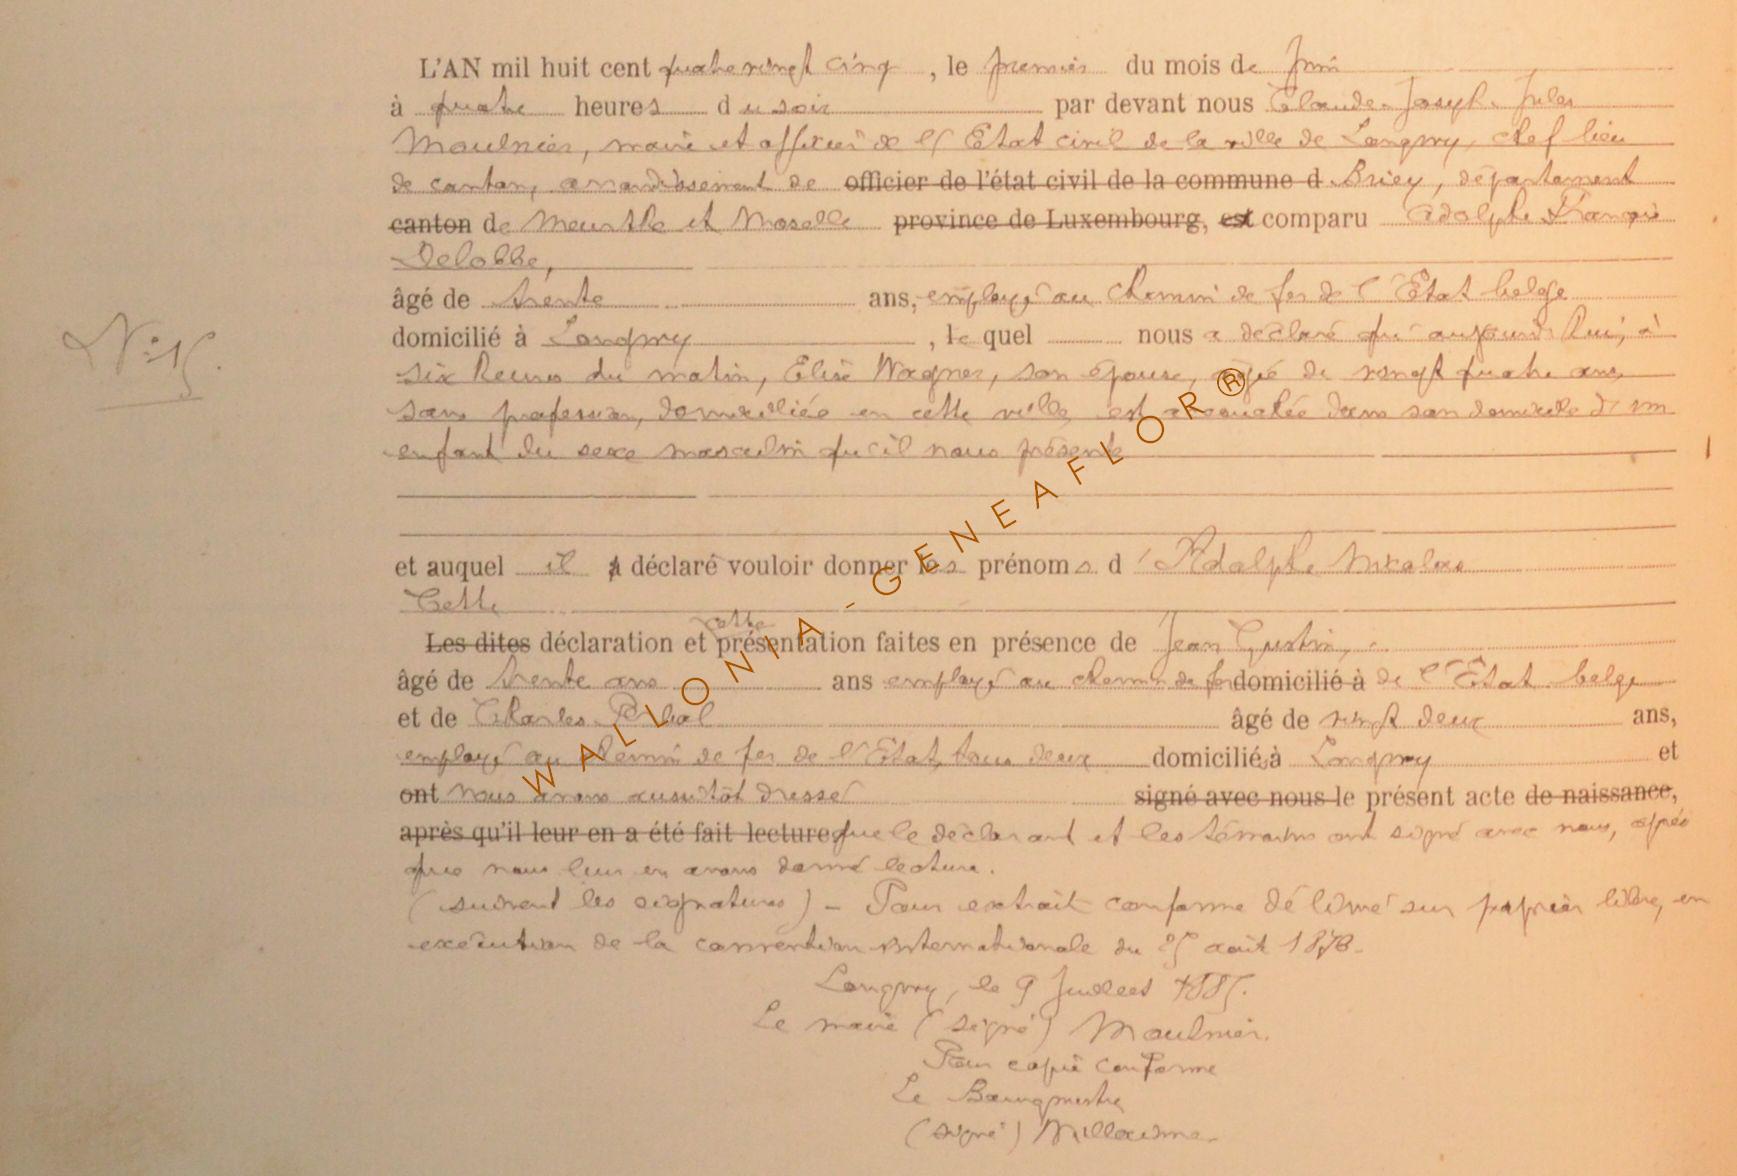 L'AN mil huit cent quatre vingt cinq, le premier du mois de Juin
à quatre heures du soir par devant nous Claude Joseph Jules
Maulnier, maire et officier de l'Etat civil de la ville de Longwy, chef lieu
de canton, arrondissement de officier de l'état civil de la commune d Briey, département
canton de Meurthe et Moselle province de Luxembourg, est comparu Adolphe François
Delobbe,
âgé de trente ans, employé au chemin de fer de l'Etat belge
domicilié à Longwy, le quel nous a déclaré qu'aujourd'hui, à
six heures du matin, Elise Wagner, son épouse, agée de vingt quatre ans,
sans profession, domiciliée en cette ville, est accouchée dans son domicile d'un
enfant du sexe masculin qu'il nous présente
et auquel il a déclaré vouloir donner les prénoms d'Adolphe Nicolas
Cette
Les dites déclaration et cette présentation faites en présence de Jean Gustin,
N° 15.
âgé de trente ans ans employé au chemin de fer domicilié à de l'Etat belge
et de Charles âgé de vingt deux ans,
employé au chemin de fer de l'Etat, tous deux domiciliés à Longwy et
ont nous avons aussitôt dressé signé avec nous le présent acte de naissance,
après qu'il leur en a été fait lecture que le déclarant et les témoins ont signé avec nous, après
que nous leur en avons donné lecture.
(suivent les signatures) – Pour extrait conforme délivré sur papier libre, en
exécution de la convention internationale du 25 août 1876.
Longwy, le 9 Juillet 1885.
Le maire (signé) Maulnier.
Pour copie conforme
Le Bourgmestre
(signé)
WALLONIA-GENEAFLOR®